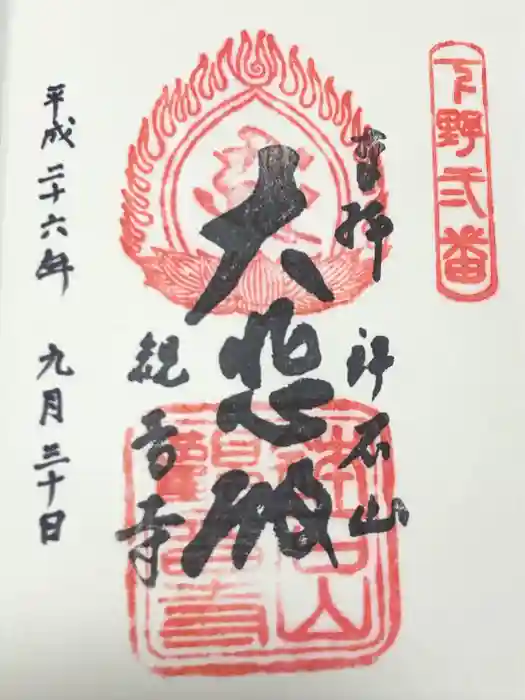 下野弐番
奉拝 蓮石山
大悲殿
観音寺
平成二十六年 九月三十日